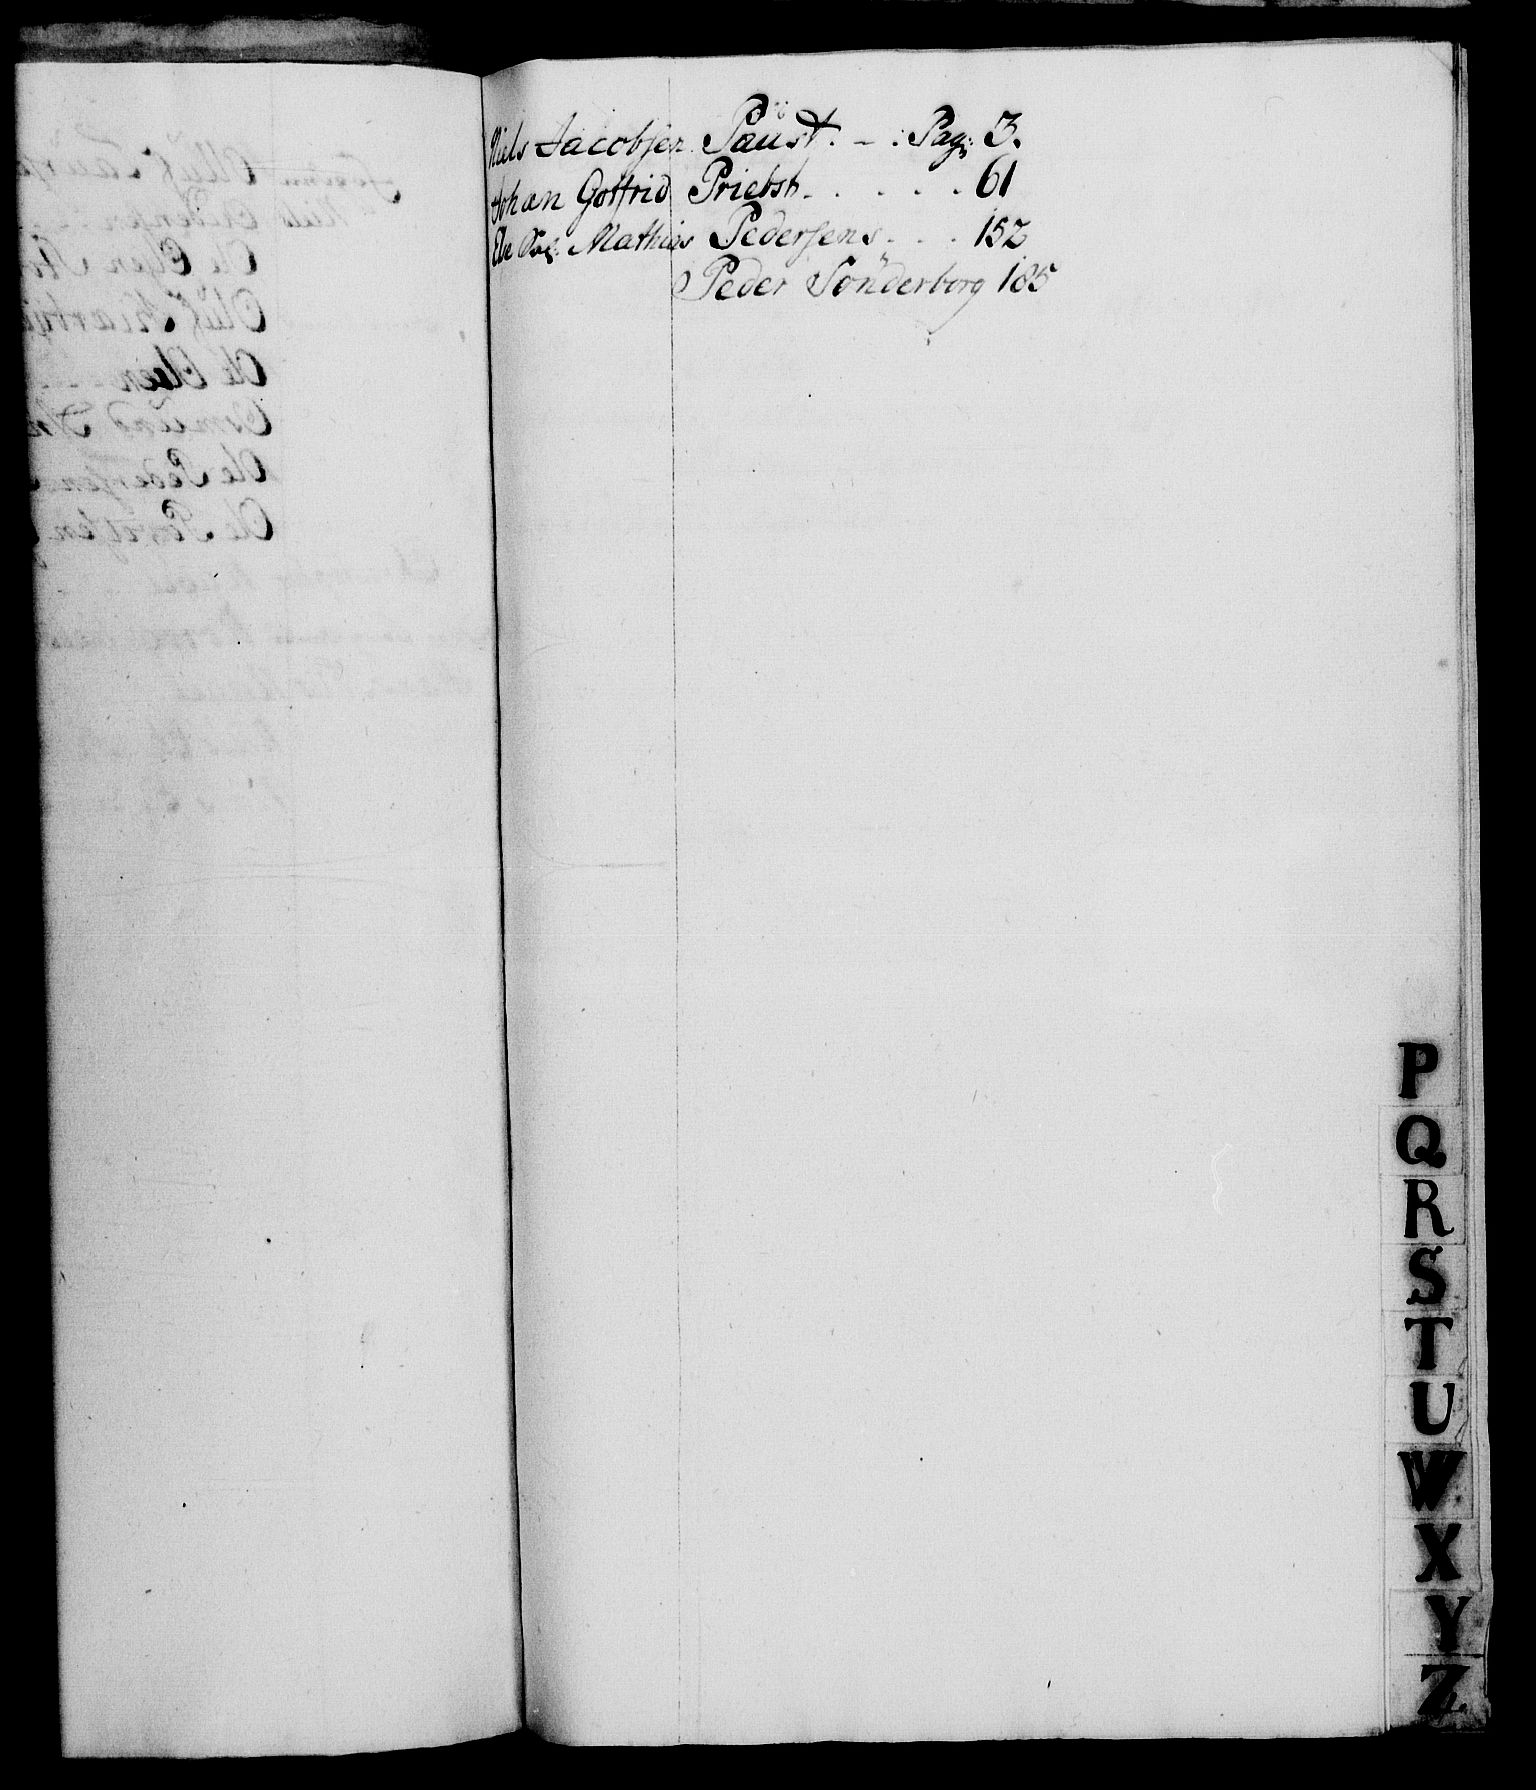 Niels Jacobsen Paüst. - . : Pag: 3.
Johan Gotfrid Priebst . . . . . 61
Mathias Pedersens . . . 152
Peder Sönderborg 185
P
Q
R
S
T
U
W
X
Y
Z